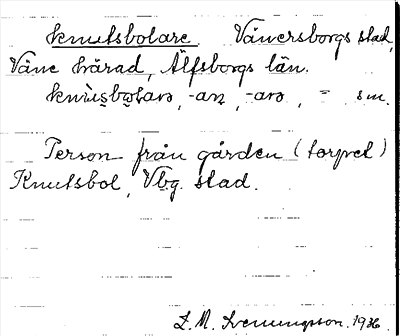 Knutsbolare. Vänersborgs stad,
Väne härad, Älfsborgs län.
-an, -arə, = sm.
Person från gården (torpet)
Knutsbol, Vbg. stad.
L. M. Svenungsson. 1936.